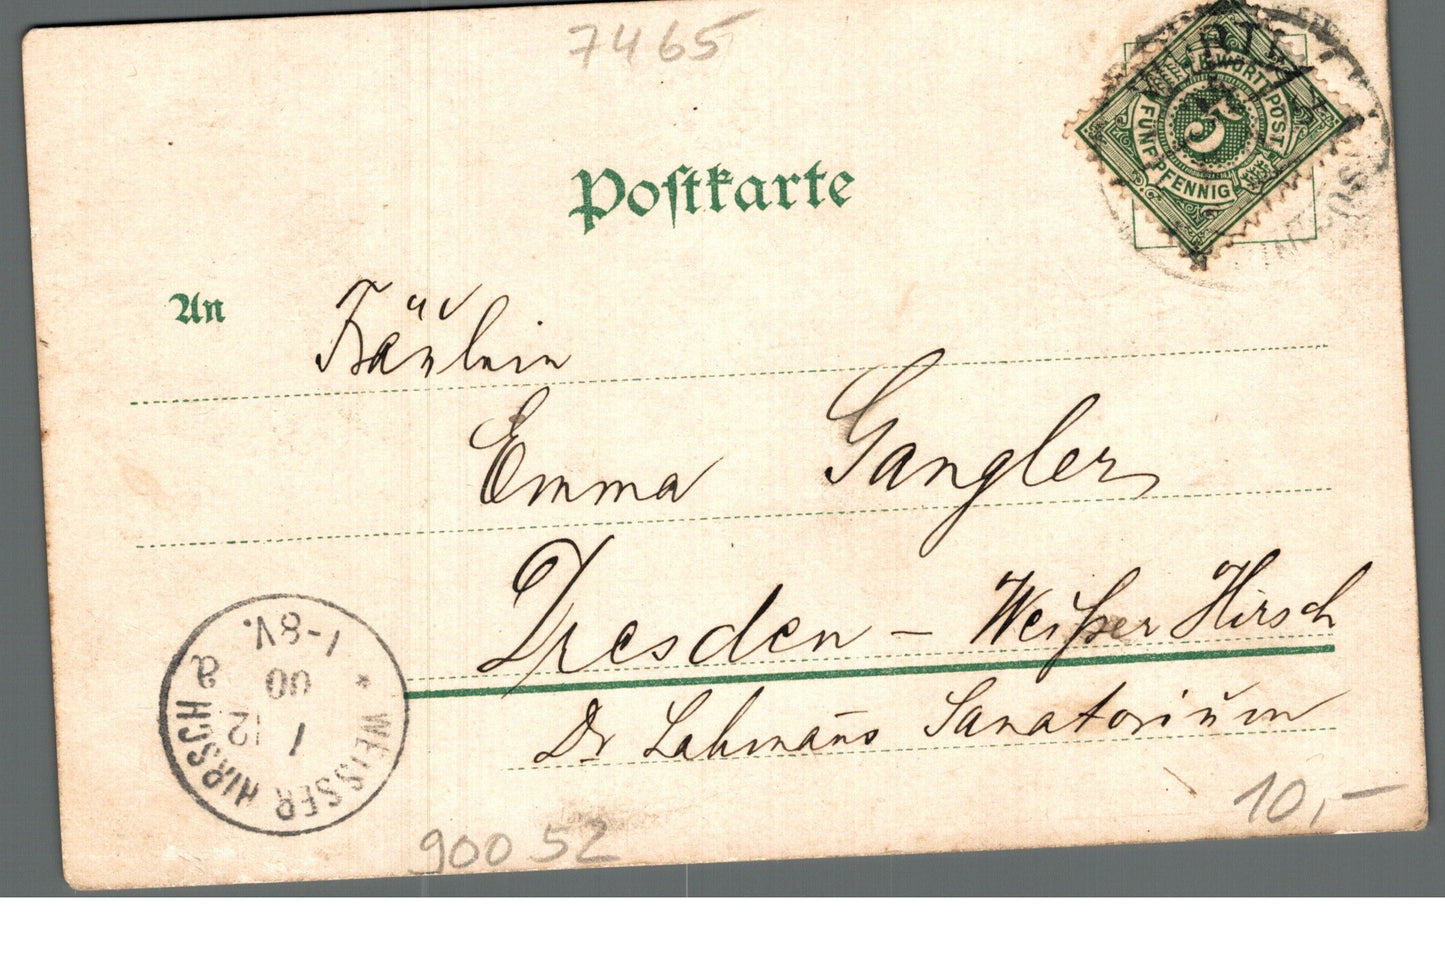 7465
FÜNF PFENNIG
POST
5
Postkarte
An
Fräulein
Emma Gangler
Dresden – Weißer Hirsch
Dr Lahmañs Sanatorium
* WEISSER HIRSCH a
1
12
00
1-8V.
10,-
90052